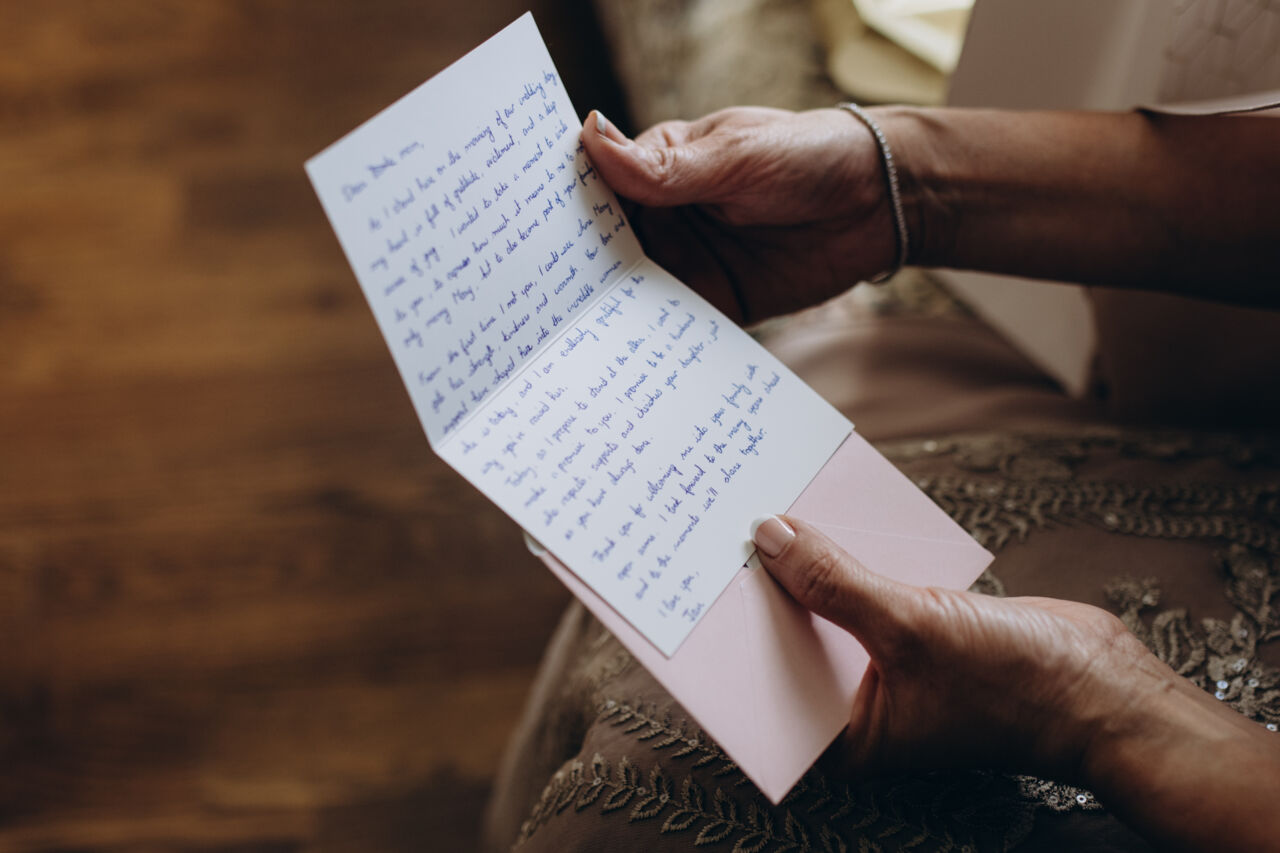 Dear Bride mom,
As I stand here on the morning of our wedding day
my heart is full of gratitude, excitement, and a deep
sense of joy. I wanted to take a moment to write
to you, to express how much it means to me to
only marry Mary, but to also become part of your family
From the first time I met you, I could see where Mary
got her strength, kindness and warmth. Your love and
support have shaped her into the incredible women
she is today, and I am endlessly grateful for the
way you've raised her.
Today, as I prepare to stand at the altar, I want to
make a promise to you. I promise to be a husband
who respects, supports and cherishes your daughter, just
as you have always done.
Thank you for welcoming me into your family with
open arms. I look forward to the many years ahead
and to the moments we'll share together.
I love you,